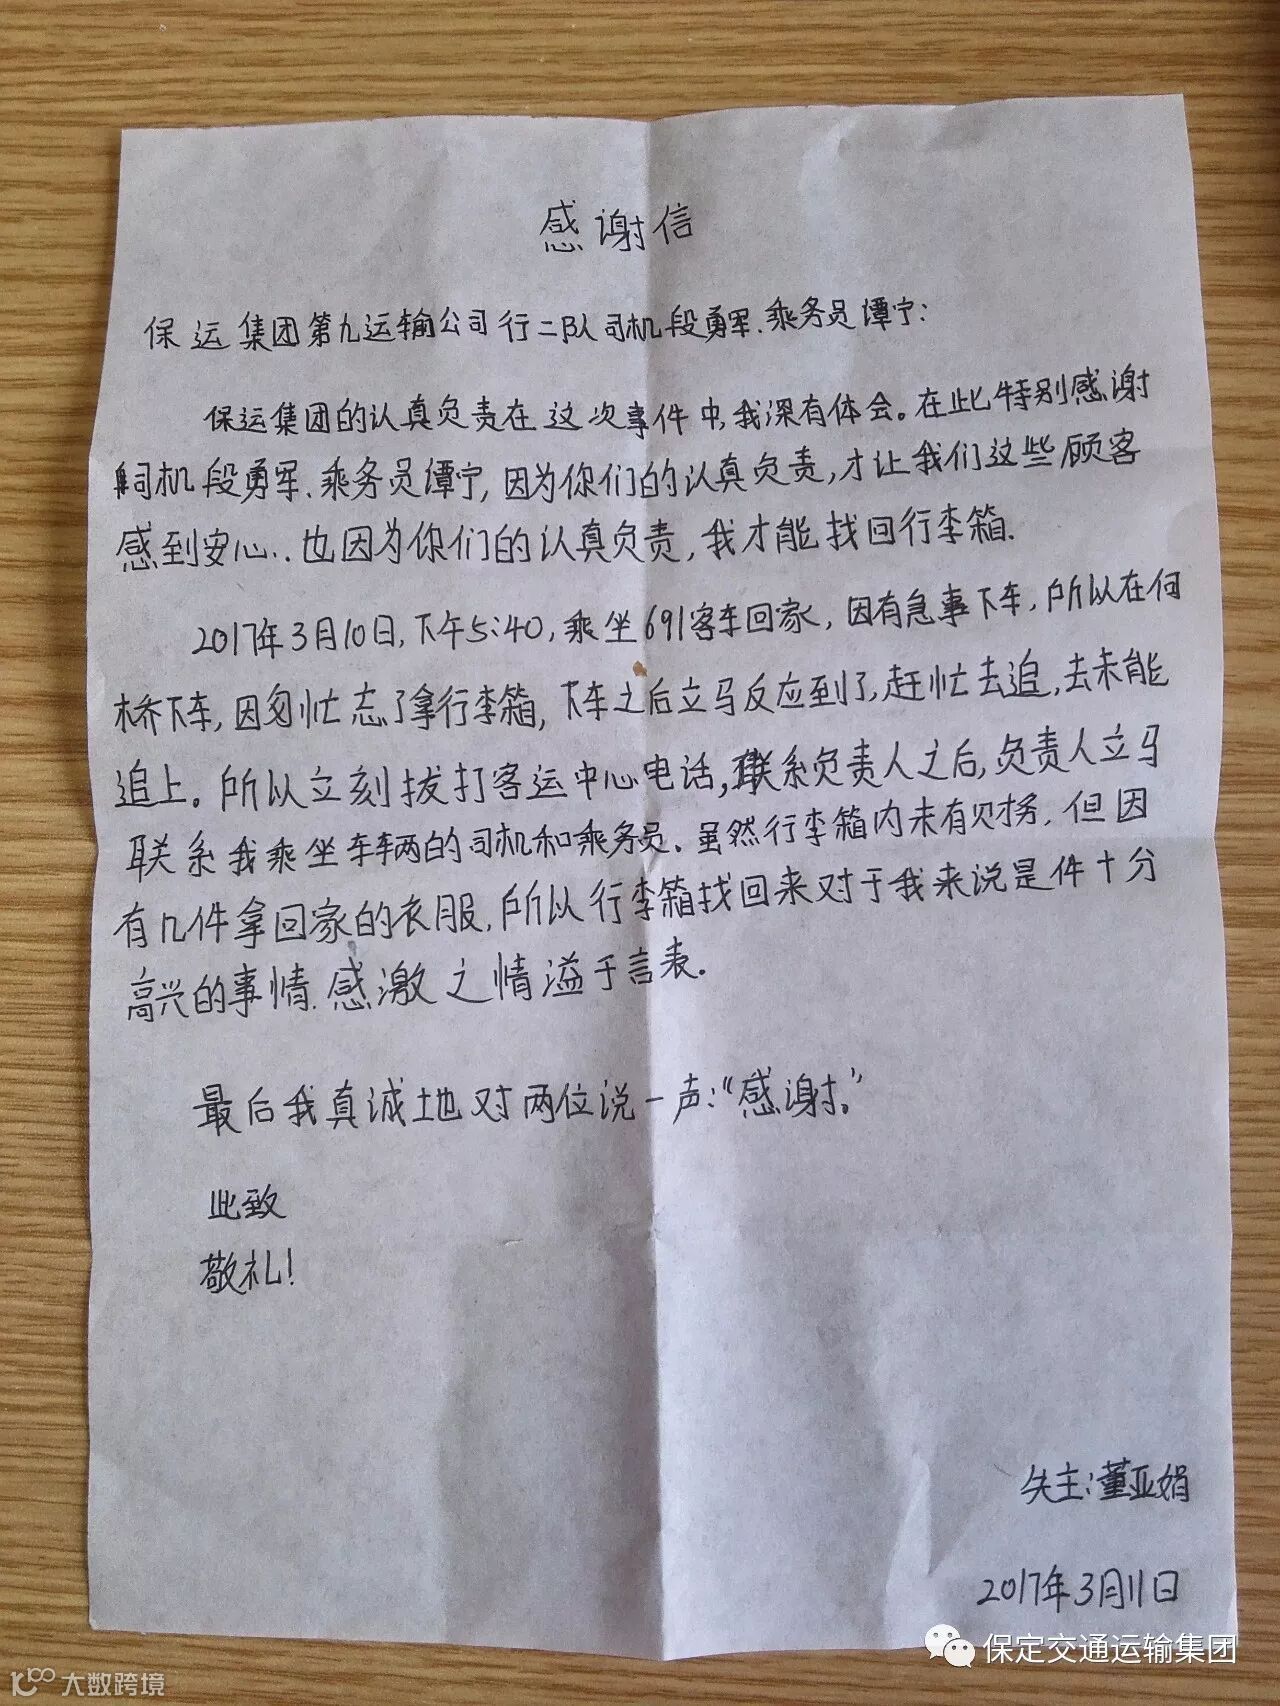 感谢信
保运集团第九运输公司行二队司机段勇军、乘务员谭宁:
保运集团的认真负责在这次事件中,我深有体会。在此特别感谢
司机段勇军、乘务员谭宁,因为你们的认真负责,才让我们这些顾客
感到安心..也因为你们的认真负责,我才能找回行李箱.
2017年3月10日,下午5:40,乘坐691客车回家,因有急事下车,所以在何
桥下车,因匆忙忘了拿行李箱,下车之后立马反应到了,赶忙去追,去未能
追上。所以立刻拔打客运中心电话,联系负责人之后,负责人立马
联系我乘坐车辆的司机和乘务员.虽然行李箱内未有财务.但因
有几件拿回家的衣服,所以行李箱找回来对于我来说是件十分
高兴的事情.感激之情溢于言表.
最后我真诚地对两位说一声:“感谢。”
此致
敬礼!
失主:董亚娟
2017年3月11日
保定交通运输集团
大数跨境